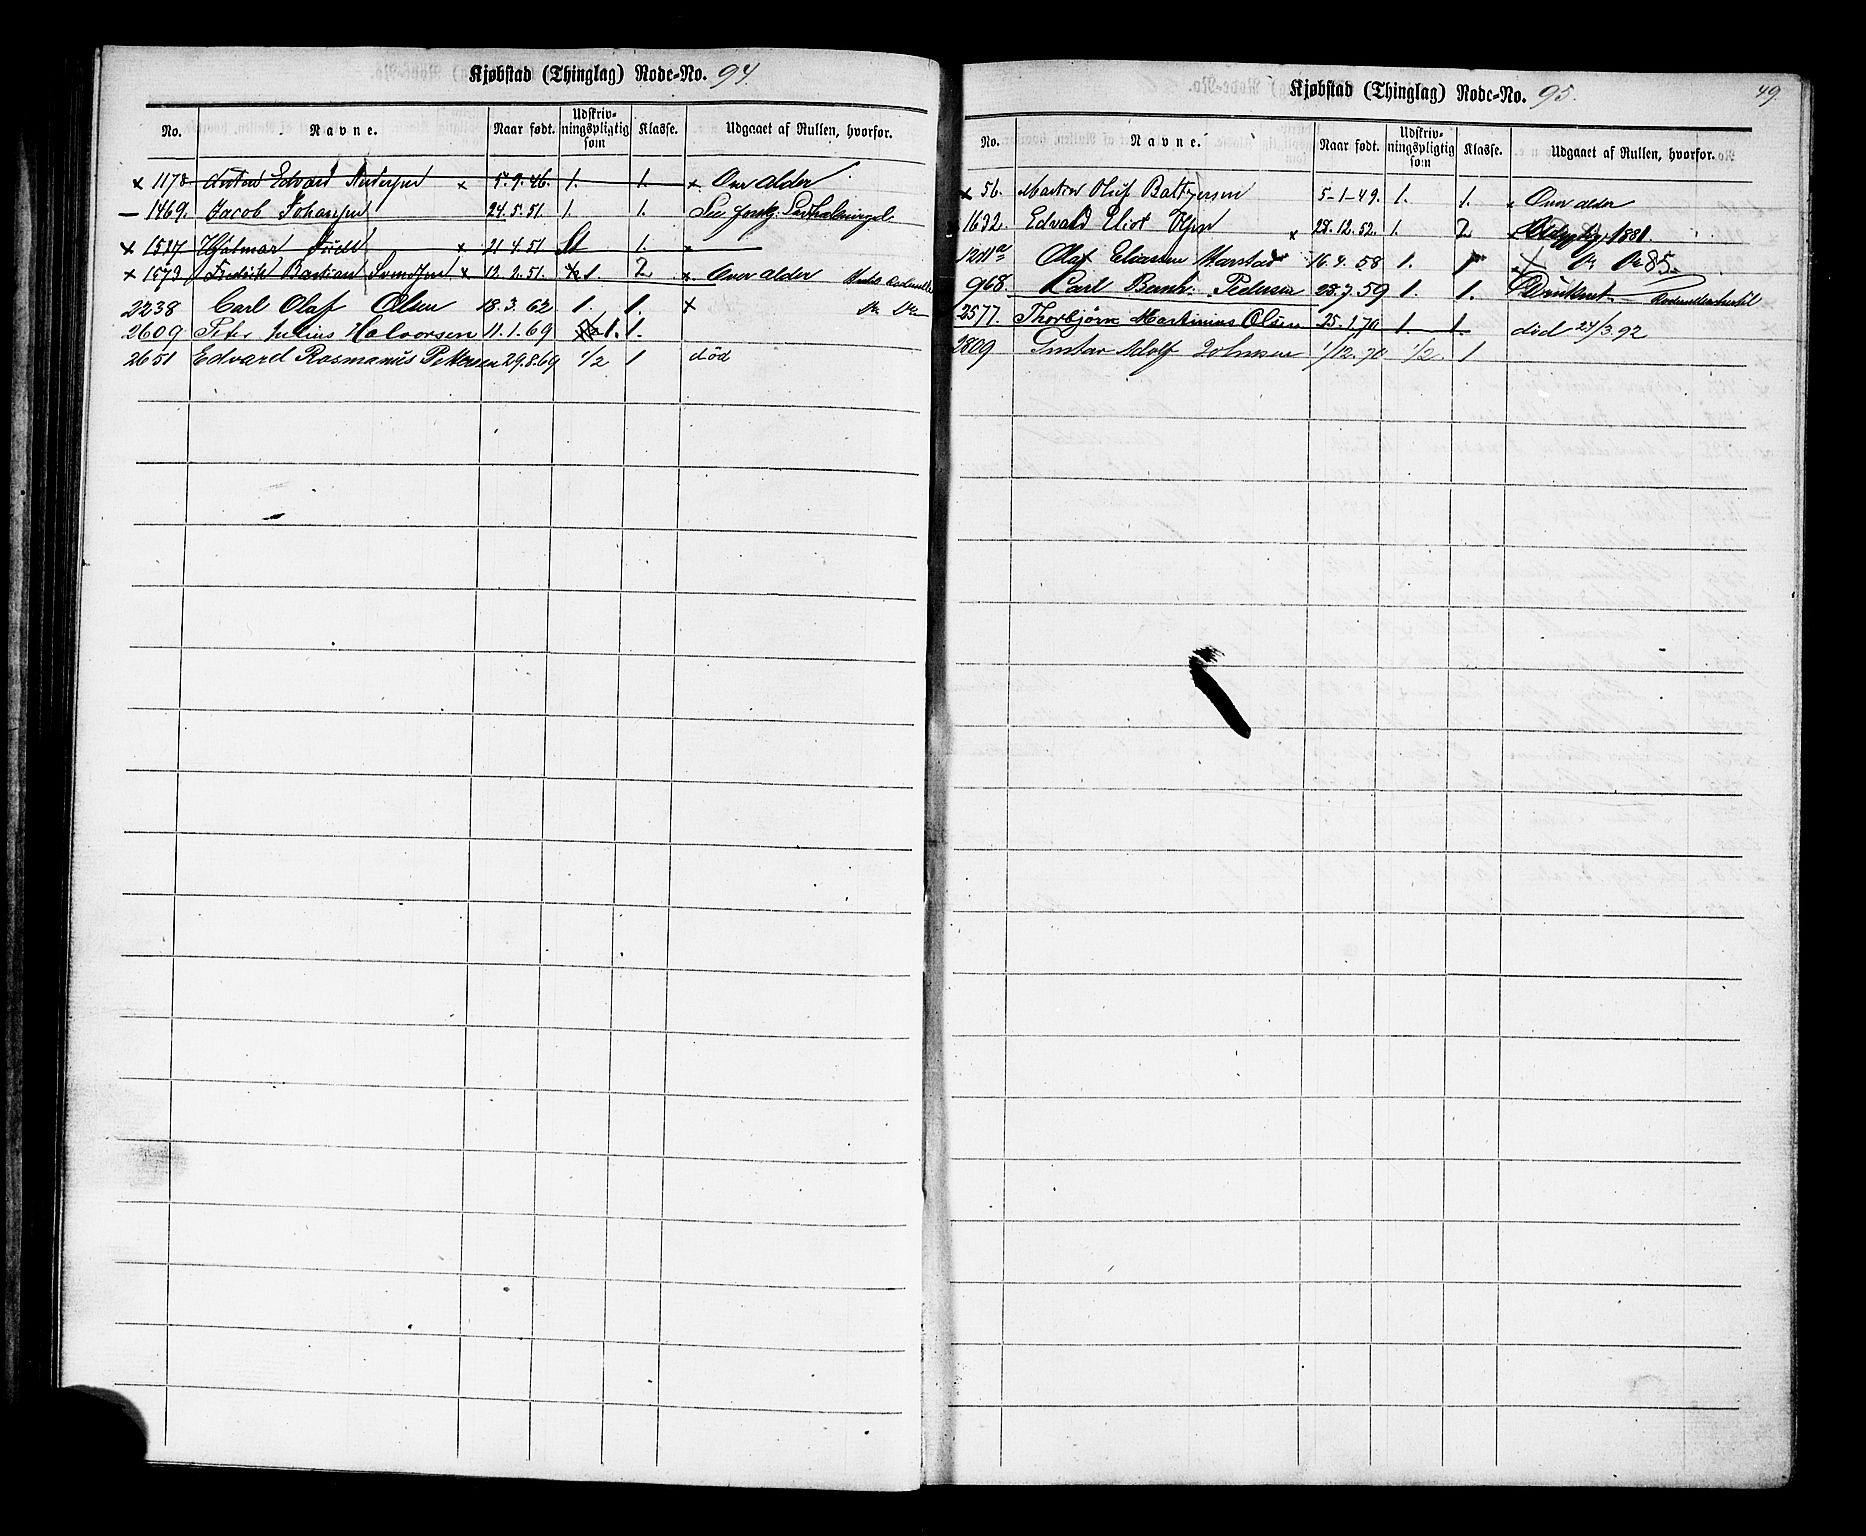 Kjøbstad (Thinglag) Rode-No. 94.
No. Navne. Naar født. Udskriv-ningspligtig som Klasse. Udgaaet af Rullen, hvorfor.
x 1178 Anton Edvard x 5.9.46. 1. 1. x Over alder
– 1469. Jacob Johansen 24.5.51. 1. 1.
x 1527 Hjalmar x 21.4.51 St 1. x —
x 1573 Fredrik Bastian Svendsen x 12.2.51. 1 2 x Over alder
2238 Carl Olaf Olsen 18.3.62 1. 1. x
2609 Peter Julius Halvorsen 11.1.69 1. 1.
2651 Edvard Rasmanus Pettersen 29.8.69 1/2 1 død
Kjøbstad (Thinglag) Rode-No. 95.
49.
No. Navne. Naar født. Udskriv-ningspligtig som Klasse. Udgaaet af Rullen, hvorfor.
x 56. Martin Oluf Baltzersen 5-1-49. 1. 1. x Over alder
1632 Edvard Eliot Olsen x 28.12.52. 1. 2 1881
1201a Olaf Eliassen Harstad 16.4.58 1. 1 85.
968. Carl Bernh. Pedersen 28.7.59 1. 1. Druknet
2577. Thorbjørn Martinius Olsen 25.1.70 1 1. død 24/3 92
2809 Gustav Adolf Johnsen 1/12.70 1/2. 1